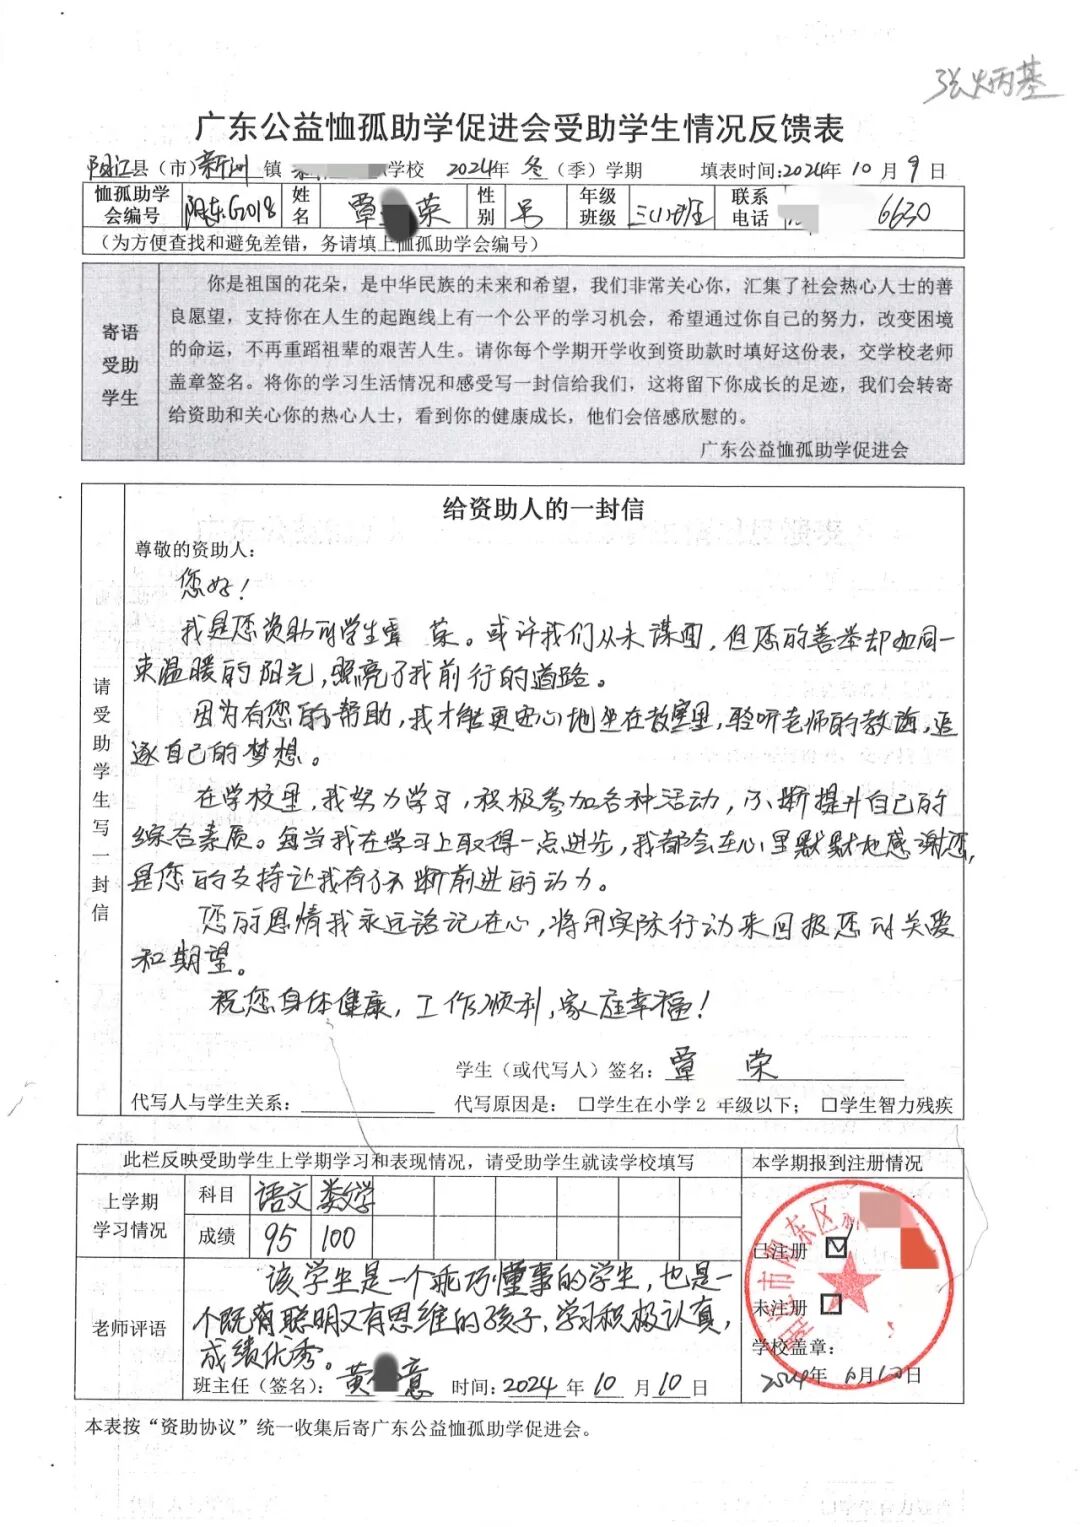 张炳基
广东公益恤孤助学促进会受助学生情况反馈表
阳江县（市）新洲镇 学校 2024年 冬（季）学期 填表时间:2024年10月9日
恤孤助学会编号 阳东G018 姓名 覃 荣 性别 年级班级 三(1)班 联系电话 6630
（为方便查找和避免差错，务请填上恤孤助学会编号）
寄语受助学生
你是祖国的花朵，是中华民族的未来和希望，我们非常关心你，汇集了社会热心人士的善
良愿望，支持你在人生的起跑线上有一个公平的学习机会，希望通过你自己的努力，改变困境
的命运，不再重蹈祖辈的艰苦人生。请你每个学期开学收到资助款时填好这份表，交学校老师
盖章签名。将你的学习生活情况和感受写一封信给我们，这将留下你成长的足迹，我们会转寄
给资助和关心你的热心人士，看到你的健康成长，他们会倍感欣慰的。
广东公益恤孤助学促进会
请受助学生写一封信
给资助人的一封信
尊敬的资助人：
您好！
我是您资助的学生覃 荣。或许我们从未谋面，但您的善举却如同一
束温暖的阳光，照亮了我前行的道路。
因为有您的帮助，我才能更安心地坐在教室里，聆听老师的教诲，追
逐自己的梦想。
在学校里，我努力学习，积极参加各种活动，不断提升自己的
综合素质。每当我在学习上取得一点进步，我都会在心里默默地感谢您，
是您的支持让我有了不断前进的动力。
您的恩情我永远铭记在心，将用实际行动来回报您的关爱
和期望。
祝您身体健康，工作顺利，家庭幸福！
学生（或代写人）签名：覃 荣
代写人与学生关系： 代写原因是： □学生在小学2 年级以下； □学生智力残疾
此栏反映受助学生上学期学习和表现情况，请受助学生就读学校填写
本学期报到注册情况
上学期学习情况
科目 语文 数学
成绩 95 100
已注册 ☑
未注册 □
学校盖章：
2024年10月10日
老师评语
该学生是一个乖巧懂事的学生，也是一
个既有聪明又有思维的孩子，学习积极认真，
成绩优秀。
班主任（签名）：黄 意 时间：2024年10月10日
本表按“资助协议”统一收集后寄广东公益恤孤助学促进会。